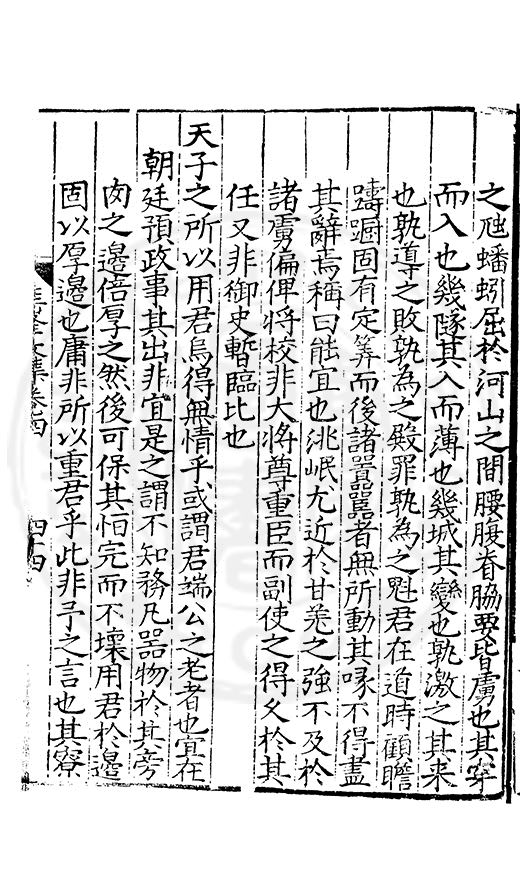 之虺蟠蚓屈於河山之間腰腹脊脇要皆虜也其穿
而入也幾隧其入而薄也幾城其變也孰激之其来
也孰導之敗孰為之殿罪孰為之魁君在道時顧瞻
躊躕固有定筭而後諸嚚嚚者無所動其喙不得盡
其辭焉稱曰能宜也洮岷尤近於甘羗之強不及於
諸虜偏俾將校非大將尊重臣而副使之得久於其
任又非御史暫臨比也
天子之所以用君烏得無情乎或謂君端公之老者也宜在
朝廷預政事其出非宜是之謂不知務凡器物於其旁
肉之邊倍厚之然後可保其怕完而不壞用君於邊
固以厚邊也庸非所以重君乎此非予之言也其寮
文集卷四
四四